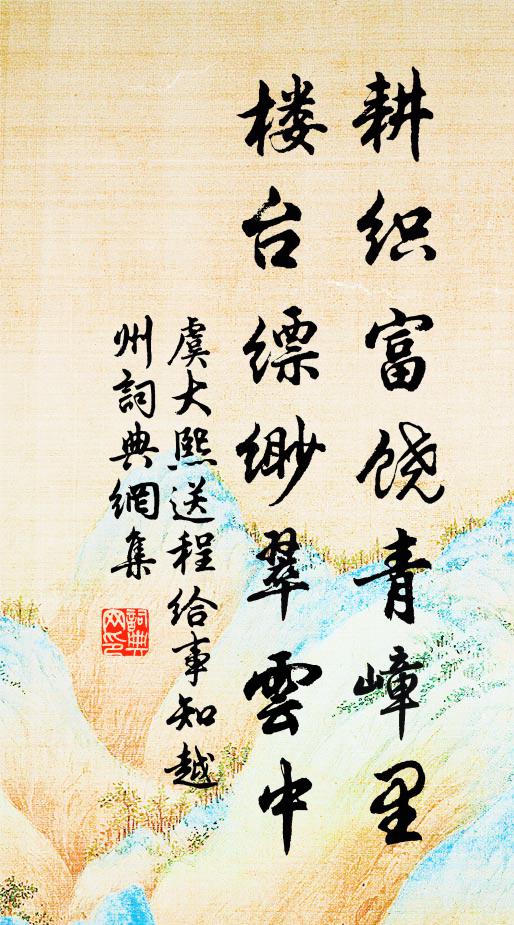 耕织富饶青嶂里
楼台缥缈翠雲中
虞大熙送程给事知越
州詞典網集
詞典网印